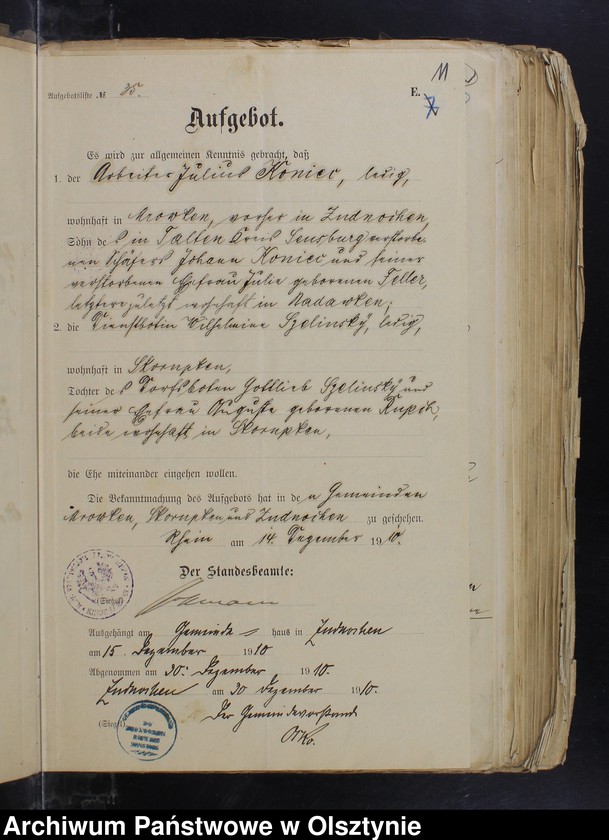 11
Aufgebotsliste № 35.
E.
7
Aufgebot.
Es wird zur allgemeinen Kenntnis gebracht, daß
1. der Arbeiter Julius Koniec, ledig,
wohnhaft in Mrowken, vorher in Zudnochen,
Sohn des in Talten Kreis Sensburg verstorbe-
nen Schäfers Johann Koniec und seiner
verstorbenen Ehefrau Julie geborenen Teller,
letztere zuletzt wohnhaft in Nadawken;
2. die Dienstbotin Wilhelmine Szelinsky, ledig,
wohnhaft in Skornpken,
Tochter des Dorfsboten Gottlieb Szelinsky und
seiner Ehefrau Auguste geborenen
beide wohnhaft in Skornpken,
die Ehe miteinander eingehen wollen.
Die Bekanntmachung des Aufgebots hat in den Gemeinden
Mrowken, Skornpken und Zudnochen zu geschehen.
Rhein am 14. Dezember 1910.
Der Standesbeamte:
(Siegel)
Ausgehängt am Gemeindehaus in Zudnochen
am 15. Dezember 1910
Abgenommen am 30. Dezember 1910.
Zudnochen am 30 Dezember 1910.
(Siegel) Der Gemeindevorstand
Archiwum Państwowe w Olsztynie